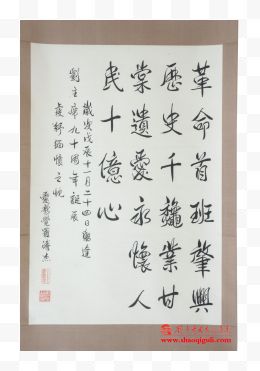 革命首班肇興
歷史千龝業甘
棠遺愛永懷人
民十億心
歲次戊辰十一月二十四日欣逢
劉主席九十周年誕辰
抒緬懷之忱
愛新覺羅溥杰
www.shaoqiguli.com